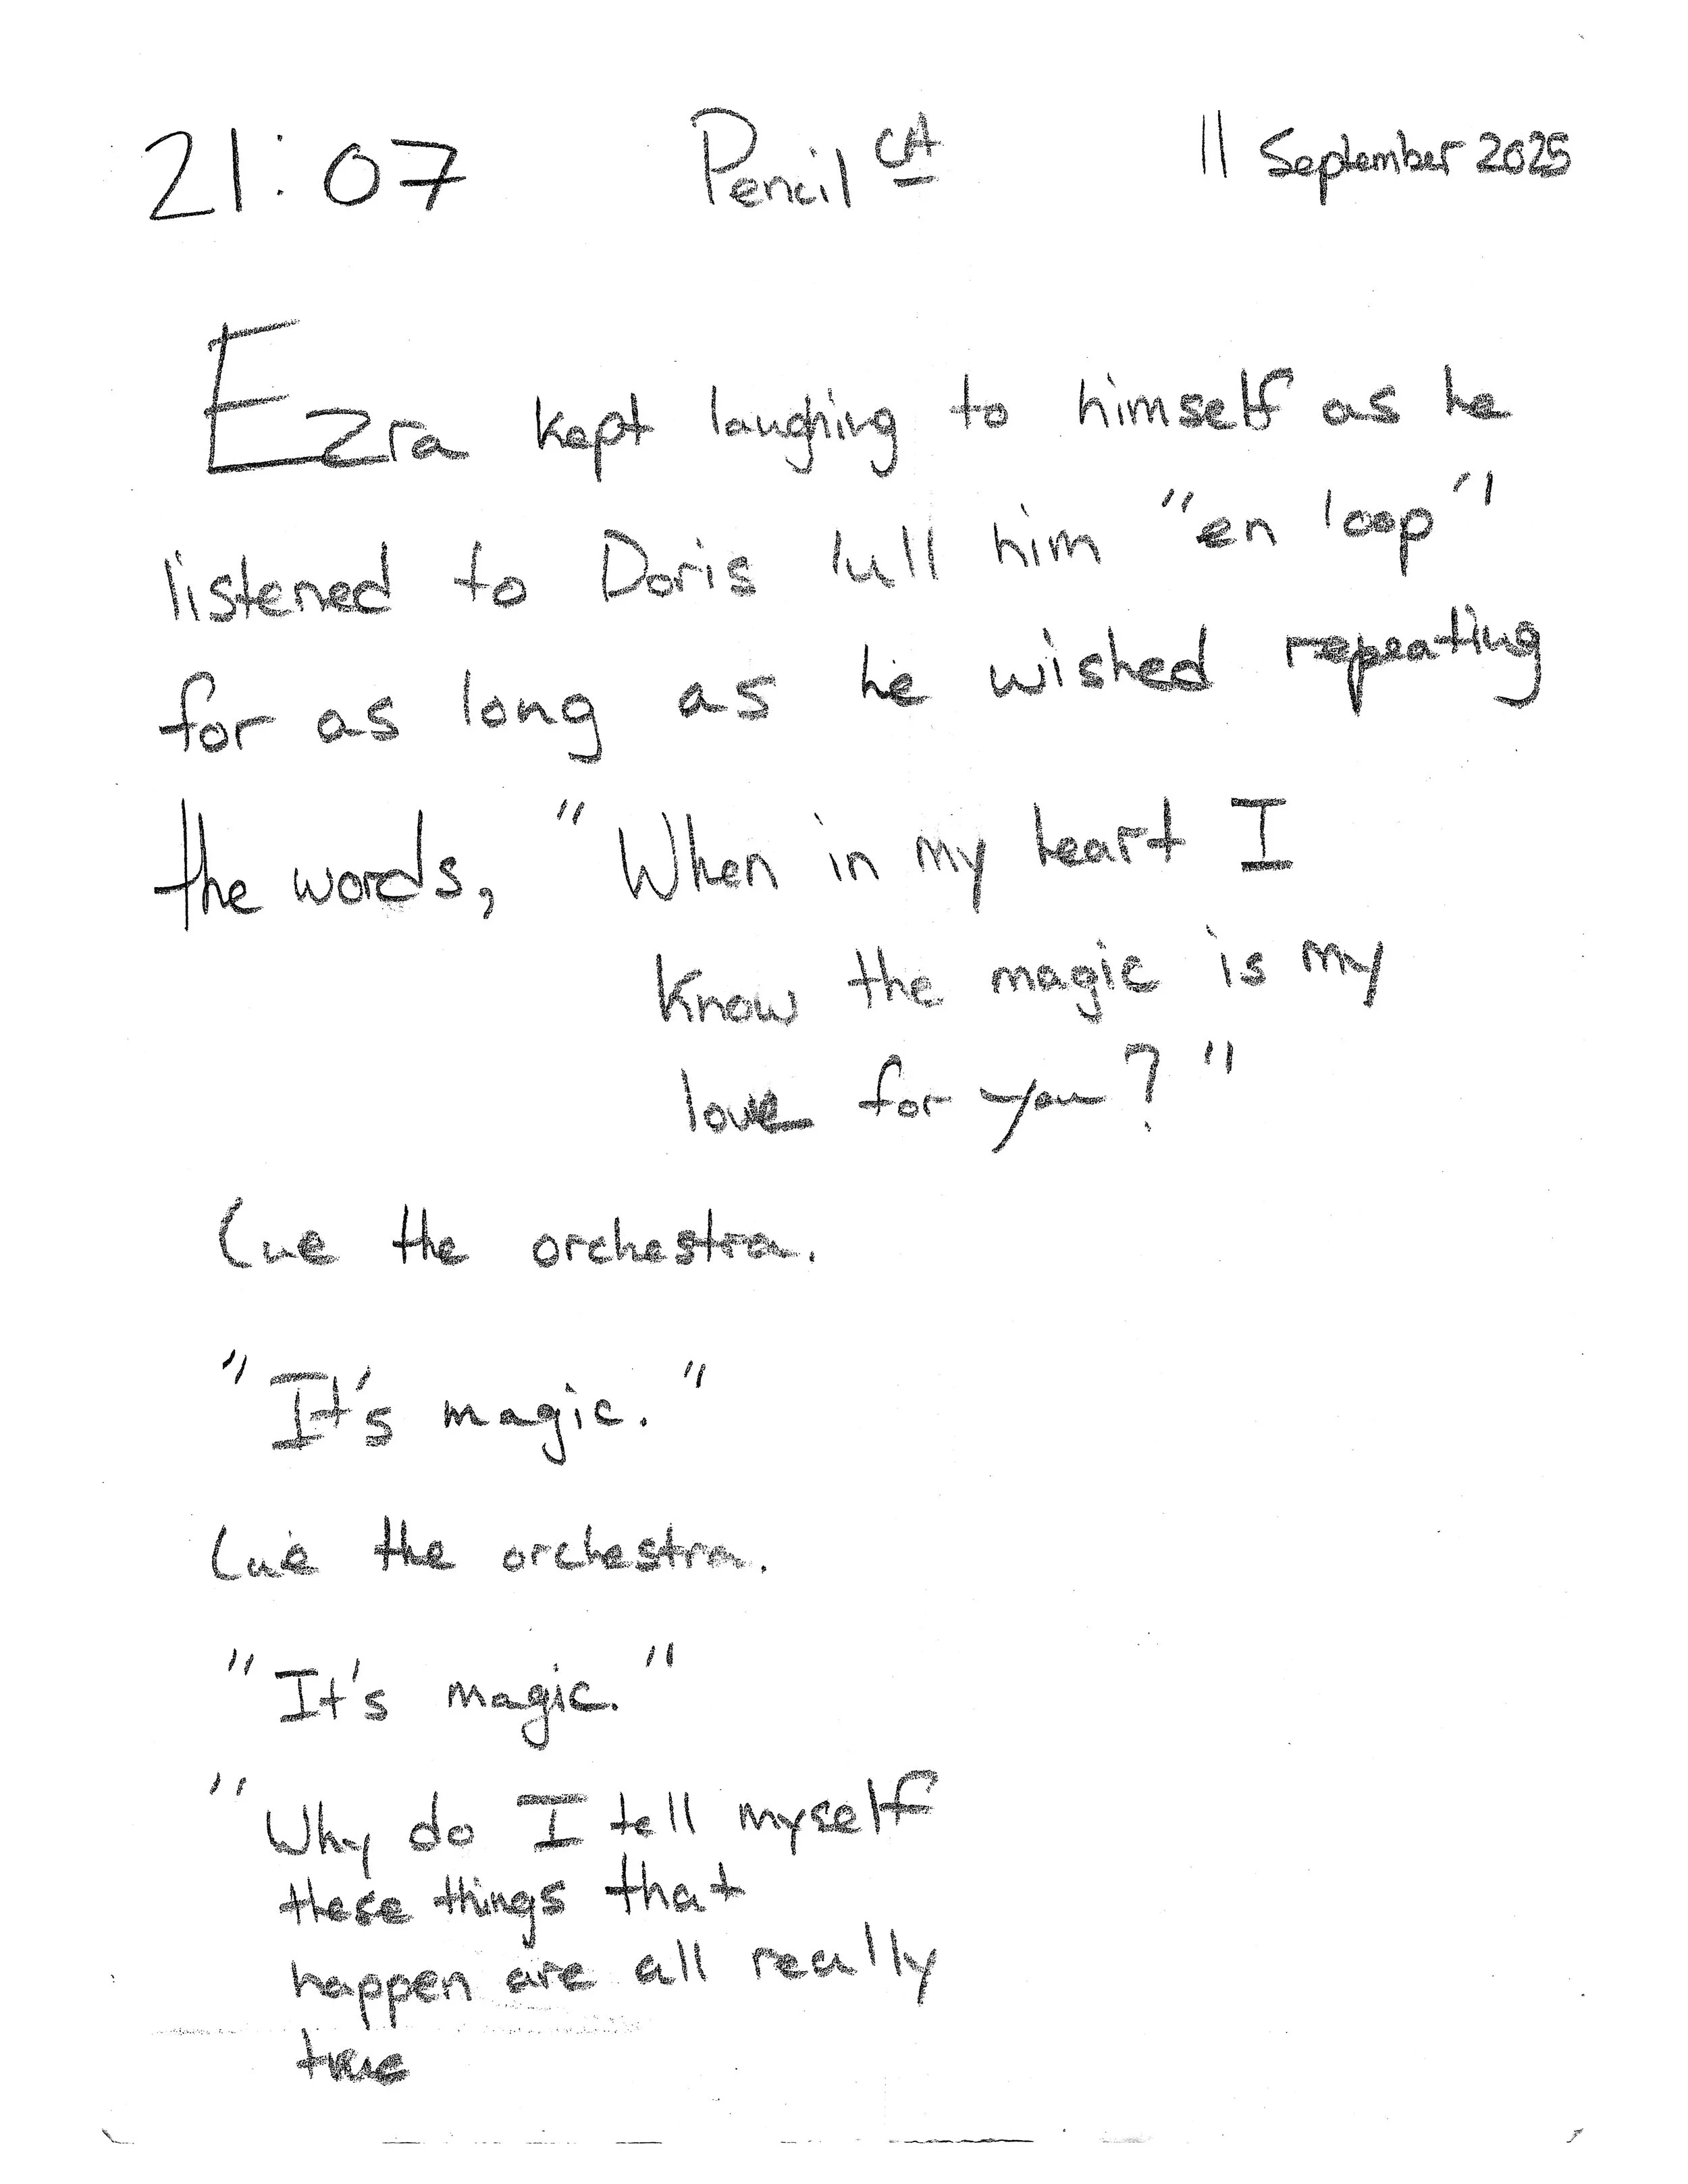 21:07 Pencil CA 11 September 2025
Ezra kept laughing to himself as he
listened to Doris lull him "en loop"
for as long as he wished repeating
the words, "When in my heart I
know the magic is my
love for you?"
Cue the orchestra.
"It's magic."
Cue the orchestra.
"It's magic."
"Why do I tell myself
these things that
happen are all really
true